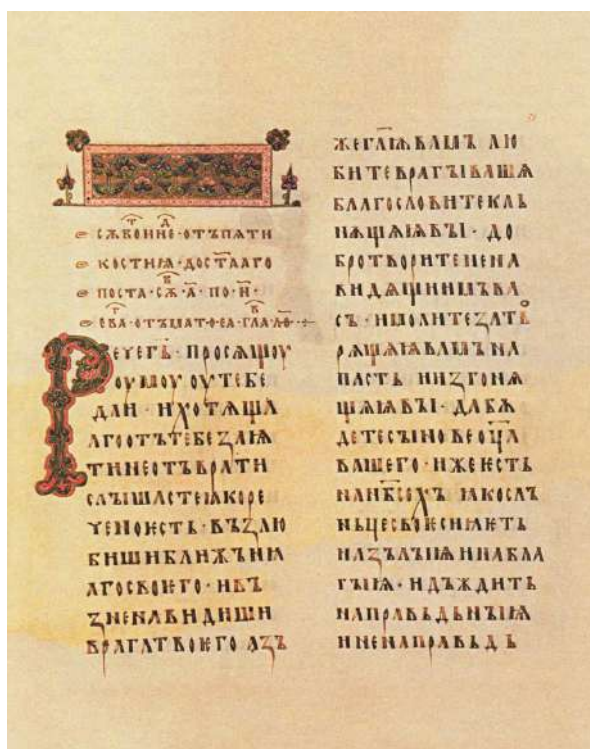 сѫбоине·отъпѧти
костиꙗ·достааго
поста·сѫ·а·по·н·
ева·отъмат·ѳ·еа·гла·ло
Речегь·просѧщоу
оумоу оутебе
даи·ихотѧща
аготътебезаꙗ
тинеотъврати
слышастеꙗкоре
ченоѥсть·възлю
бишиближьнꙗ
агосвоѥго·ивъ
зненавидиши
врагатвоѥго азъ
жегл҃ѭвамъ лю
битеврагꙑвашѧ
благословитекль
нѫщѧѩвꙑ·до
бротворитенена
видѧщиимъва
съ·имолитезатъ
рѧщѧѩвамъна
пасть иизгонѧ
щѧѩвꙑ·дабѫ
детесꙑновеоц҃а
вашего·ижеѥсть
нанб҃сохъ ꙗкослъ
ньцесвоѥсиꙗѥть
назълъꙑѩинабла
гꙑѩ·идъждить
направьдьнꙑѩ
иненаправьдь